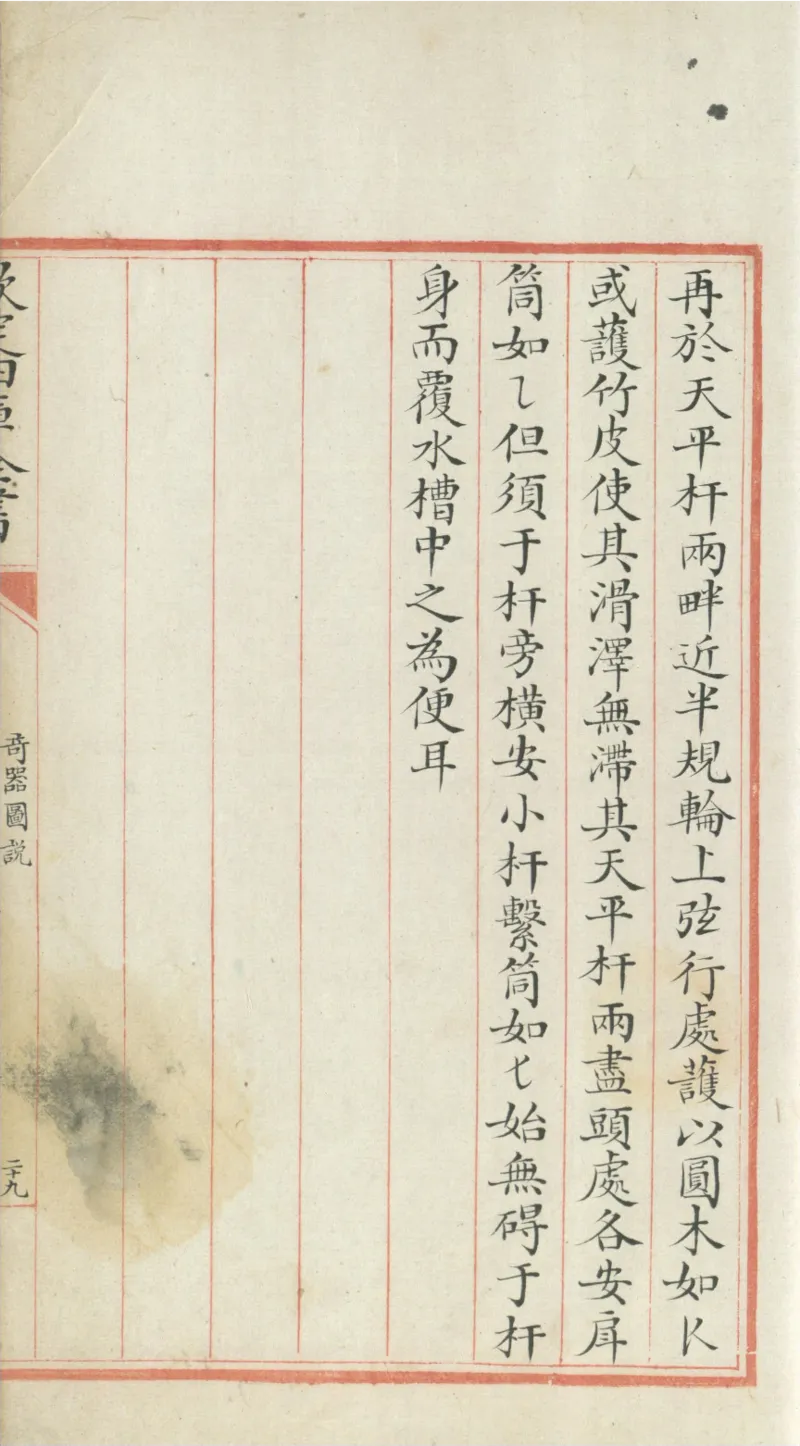 再於天平杆兩畔近半規輪上弦行處護以圓木如K
或護竹皮使其滑澤無滯其天平杆兩盡頭處各安戽
筒如l但須于杆旁橫安小杆繫筒如t始無碍于杆
身而覆水槽中之為便耳
欽定四庫全書
奇器圖説
二十九